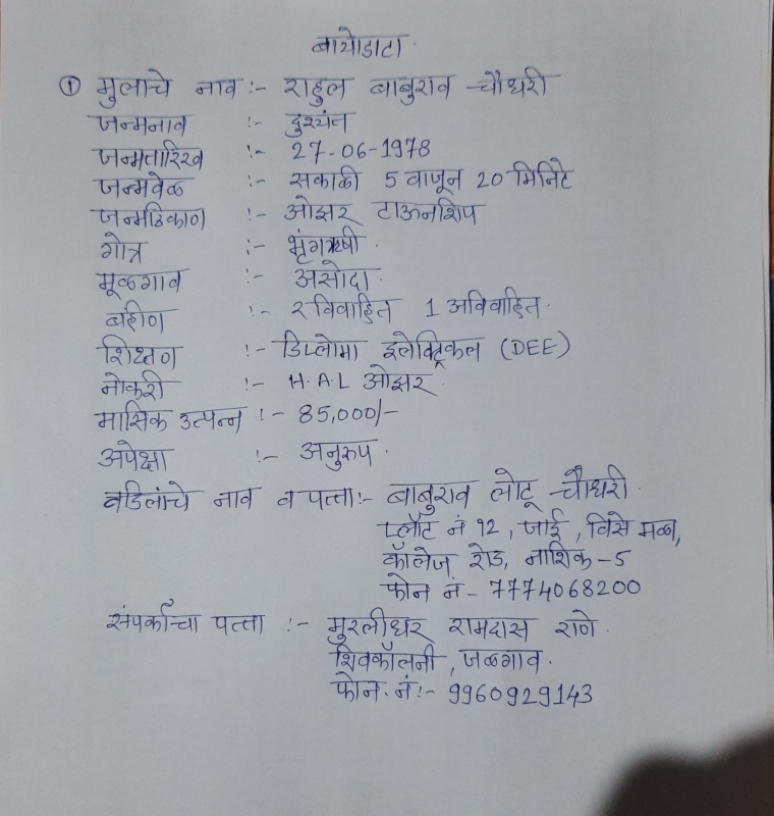 बायोडाटा.
① मुलाचे नाव :- राहुल बाबुराव चौधरी
जन्मनाव :- दुश्यंत
जन्मतारिख :- 27-06-1978
जन्मवेळ :- सकाळी 5 वाजून 20 मिनिटे
जन्मठिकाण :- ओझर टाऊनशिप
गोत्र :- भृंगऋषी.
मूळगाव :- असोदा.
बहीण :- २ विवाहित 1 अविवाहित.
शिक्षण :- डिप्लोमा इलेक्ट्रिकल (DEE)
नोकरी :- H.A.L ओझर.
मासिक उत्पन्न :- 85,000/-
अपेक्षा :- अनुरुप.
वडिलांचे नाव व पत्ता:- बाबुराव लोटू चौधरी.
प्लॉट नं 12, जाई, विसे मळा,
कॉलेज रोड, नाशिक-5
फोन नं - 7774068200
संपर्काचा पत्ता :- मुरलीधर रामदास राणे.
शिवकॉलनी, जळगाव.
फोन. नं:- 9960929143